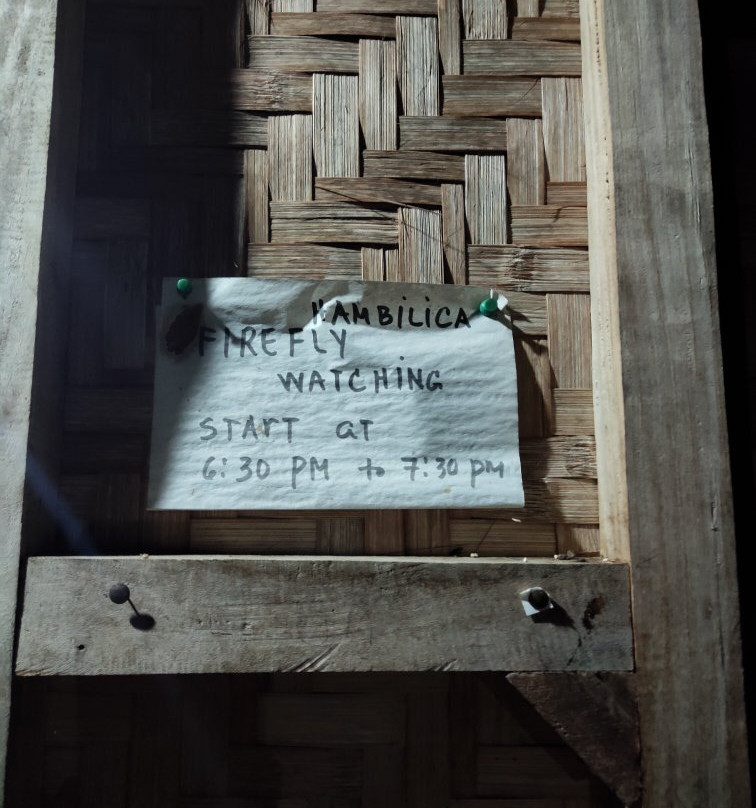 HAMBiLiCA
FIREFLY
WATCHiNG
START aT
6:30 PM to 7:30 pm